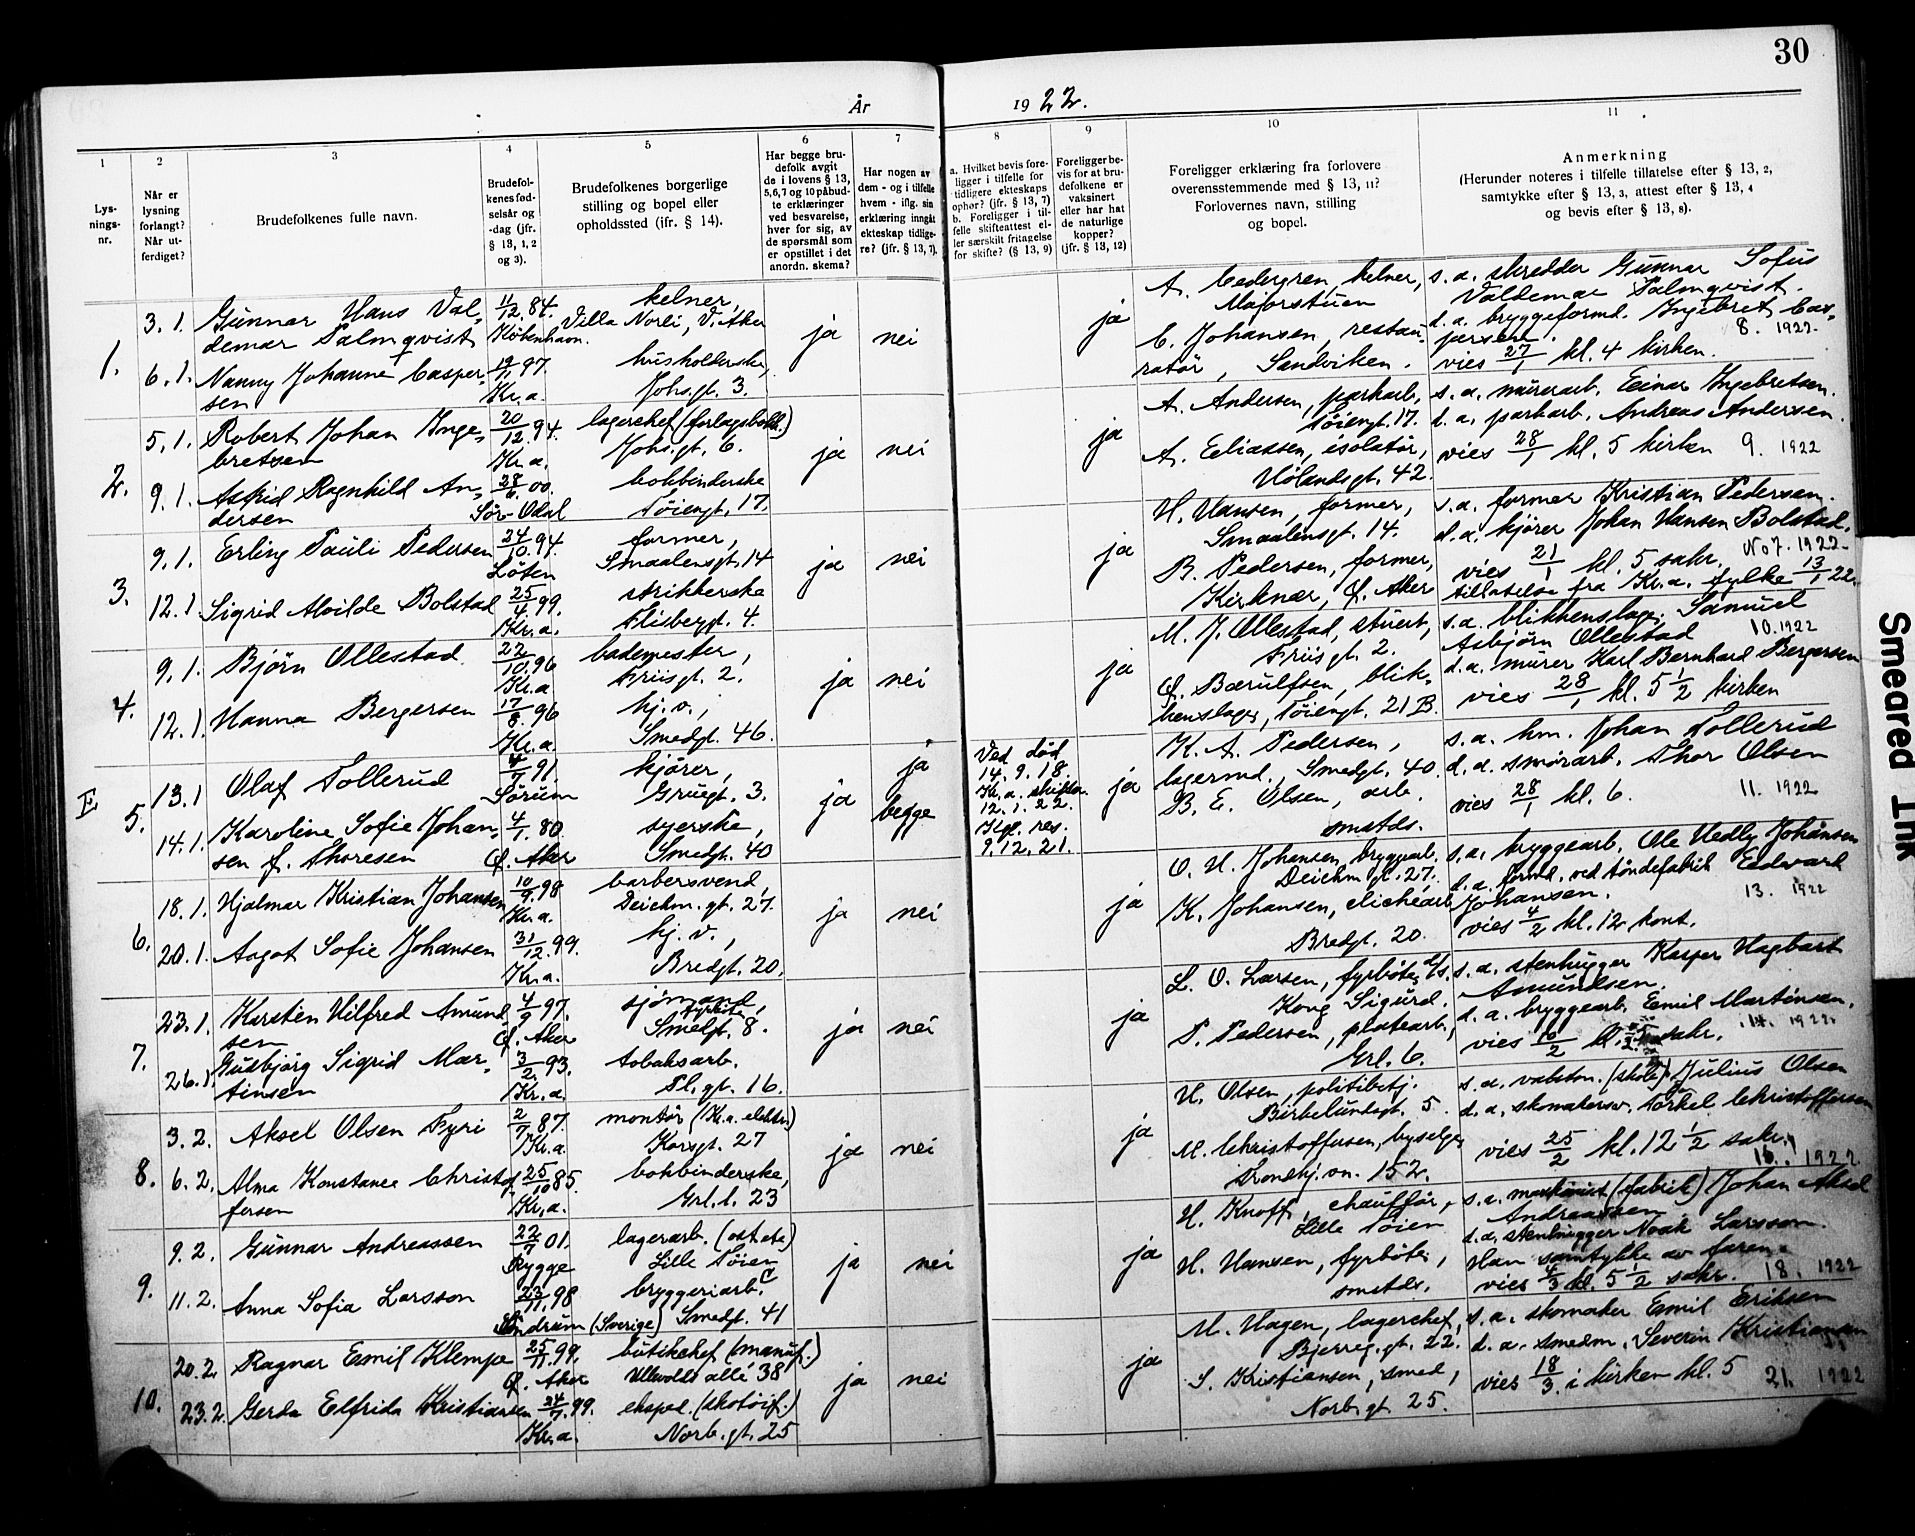 30
År 1922.
1
Lys-
nings-
nr.
2
Når er
lysning
forlangt?
Når ut-
ferdiget?
3
Brudefolkenes fulle navn.
4
Brudefol-
kenes fød-
selsår og
-dag (jfr.
§ 13, 1, 2
og 3).
5
Brudefolkenes borgerlige
stilling og bopel eller
opholdssted (ifr. § 14).
6
Har begge bru-
defolk avgit
de i lovens § 13,
5,6,7 og 10 påbud-
te erklæringer
ved besvarelse,
hver for sig, av
de spørsmål som
er opstillet i det
anordn. skema?
7
Har nogen av
dem - og i tilfelle
hvem - iflg. sin
erklæring inngåt
ekteskap tidlige-
re? (jfr. § 13, 7).
8
a. Hvilket bevis fore-
ligger i tilfelle for
tidligere ekteskaps
ophør? (jfr. § 13, 7)
b. Foreligger i til-
felle skifteattest el-
ler særskilt fritagelse
for skifte? (§ 13, 9)
9
Foreligger be-
vis for at bru-
defolkene er
vaksinert
eller har hat
de naturlige
kopper?
(jfr. § 13, 12)
10
Foreligger erklæring fra forlovere
overensstemmende med § 13, 11?
Forlovernes navn, stilling
og bopel.
11
Anmerkning
(Herunder noteres i tilfelle tillatelse efter § 13, 2,
samtykke efter § 13, 3, attest efter § 13, 4
og bevis efter § 13, 8).
1.
3. 1.
6. 1.
Gunnar Hans Val-
demar Palmqvist
Nanny Johanne Casper-
sen
11/12. 84.
København.
97.
Kr.a.
kelner,
Villa Norli, V. Aker
husholderske,
Johs.gt. 3.
ja
nei
ja
A. Cedergren, kelner,
Majorstuen
C. Johansen, restau-
ratør, Sandviken.
s. a. skredder Gunnar Sofus
Valdemar Palmqvist.
d. a. bryggeformd. Ingebret Cas-
persen.
8. 1922.
vies 27/1 kl. 4 kirken.
2.
5. 1.
9. 1.
Robert Johan Inge-
bretsen
Astrid Ragnhild An-
dersen
20/12. 94.
Kr.a.
28/6. 00.
Sør-Odal
lagerchef (forlagsbokh.)
Johs.gt. 6.
bokbinderske
Tøiengt. 17.
ja
nei
ja
A. Andersen, parkarb.,
Tøiengt. 17.
A. Eliassen, isolatør,
Hølandsgt. 42.
s. a. murerarb. Einar Ingebretsen.
d. a. parkarb. Andreas Andersen.
vies 28/1 kl. 5 kirken 9. 1922
3.
9. 1.
12. 1
Erling Pauli Pedersen
Sigrid Alvilde Bolstad
24/10. 94.
Løten
25/4. 99.
Kr.a.
former,
Smaalensgt. 14
strikkerske
Flisbergt. 4.
ja
nei
ja
H. Hansen, former,
Smaalensgt. 14.
B. Pedersen, former,
Kirknær, Ø. Aker
s. a. former Kristian Pedersen.
d. a. kjører Johan Hansen Bolstad.
No 7. 1922.
vies 21/1 kl. 5 sakr.
tillatelse fra Kr.a. fylke 13/1 22.
4.
9. 1.
12. 1.
Bjørn Ollestad.
Hanna Bergersen
22/10. 96
Kr.a
17/8. 96
Kr.a.
bademester,
Friisgt. 2.
hj. v.,
Smedgt. 46.
ja
nei
ja
M. J. Ollestad, stuert,
Friisgt. 2.
Ø. Bærulfsen, blik-
kenslager, Tøiengt. 21 B.
s. a. blikkenslager Samuel
Asbjørn Ollestad 10. 1922
d. a. murer Karl Bernhard Bergersen
vies 28/1 kl. 5 1/2 kirken
E
5.
13. 1
14. 1.
Olaf Tollerud
Karoline Sofie Johan-
sen f. Thoresen
4/7 91.
Sørum
4/1. 80.
Ø. Aker
kjører,
Gruegt. 3.
syerske,
Smedgt. 40
ja
ja
begge
Ved død
14. 9. 18.
Kr.a. skifter.
12. 1. 22.
Kgl. res.
9. 12. 21.
ja
K. A. Pedersen,
lagermd., Smedgt. 40.
B. E. Olsen, arb.
smstds.
s. a. hm. Johan Tollerud
d. a. smørarb. Thor Olsen
vies 28/1 kl. 6. 11. 1922
6.
18. 1.
20. 1.
Hjalmar Kristian Johansen
Aagot Sofie Johansen
10/9. 98
Kr.a.
31/12. 99.
Kr.a.
barbersvend,
Deichm.gt. 27.
hj. v.,
Bredgt. 20.
ja
nei
ja
O. H. Johansen, bryggearb.
Deichm.gt. 27.
K. Johansen, clichéarb.
Bredgt. 20.
s. a. bryggearb. Ole Hedly Johansen
d. a. formd. ved tøndefabrik Eedvard
Johansen. 13. 1922
vies 4/2 kl. 12 kont.
7.
23. 1.
26. 1.
Karsten Hilfred Amund-
sen
Gudbjørg Sigrid Mar-
tinsen
4/9 97.
Ø. Aker
3/2. 93.
Kr.a.
sjømand,
fyrbøter
Smedgt. 8.
tobaksarb.
Pl.gt. 16.
ja
nei
ja
L. O. Larsen, fyrbøter d/s.
Kong Sigurd.
P. Pedersen, platearb.,
Grl. 6.
s. a. stenhugger Kasper Hagbart
Amundsen.
d. a. bryggearb. Emil Martinsen.
14. 1922.
8.
3. 2.
6. 2.
Aksel Olsen Fyri
Alma Konstance Christof-
fersen
2/7. 87.
Kr.a.
25/10 85.
Kr.a.
montør (Kr.a. elektr.)
Korsgt. 27
bokbinderske,
Grl.l. 23
ja
nei
ja
H. Olsen, politibetj.
Birkelundsgt. 5.
M. Christoffersen, byselger
Tronhj.vn. 152.
s. a. vaktm. (skole) Julius Olsen
d. a. skomakersv. Torkel Christoffersen
vies 25/2 kl. 12 1/2 sakr.
16. 1922
9.
9. 2.
11. 2.
Gunnar Andreassen
Anna Sofia Larsson
22/7 01.
Rygge
23/11. 98
(Sverige)
lagerarb. (ost etc)
Lille Tøien
bryggeriarb.
Smedgt. 41
ja
nei
ja
H. Knoff, chauffør,
Lille Tøien
H. Hansen, fyrbøter,
smstds.
s. a. maskinist (fabrik) Johan Aksel
Andreassen.
d. a. stenhugger Noak Larsson.
Han samtykke av faren.
vies 4/3 kl. 5 1/2 sakr. 18. 1922
10.
20. 2.
23. 2.
Ragnar Emil Klempe
Gerda Elfrida Kristiansen
25/11. 99.
Ø. Aker
24/7. 99.
Kr.a.
butikchef (manuf.)
Ullevolds allé 38
eksped. (skotøif.)
Norb.gt. 25
ja
nei
ja
M. Hagen, lagerchef,
Bjerreg.gt. 22.
S. Kristiansen, smed,
Norb.gt. 25.
s. a. skomaker Emil Eriksen
d. a. smedm. Severin Kristiansen
vies 18/3. i kirken kl. 5 21. 1922
Smeared Ink